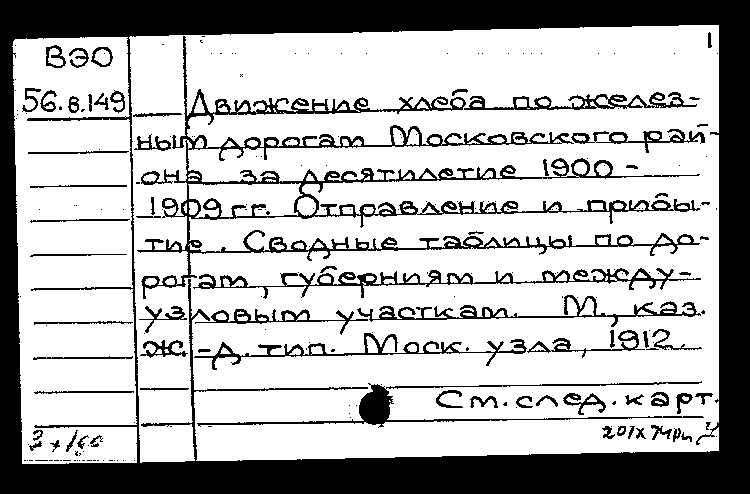 1
ВЭО
56.8.149
Движение хлеба по желез-
ным дорогам Московского рай-
она за десятилетие 1900 -
1909 гг. Отправление и прибы-
тие. Сводные таблицы по до-
рогам, губерниям и между-
узловым участкам. М., каз.
ж.-д. тип. Моск. узла, 1912.
См. след. карт.